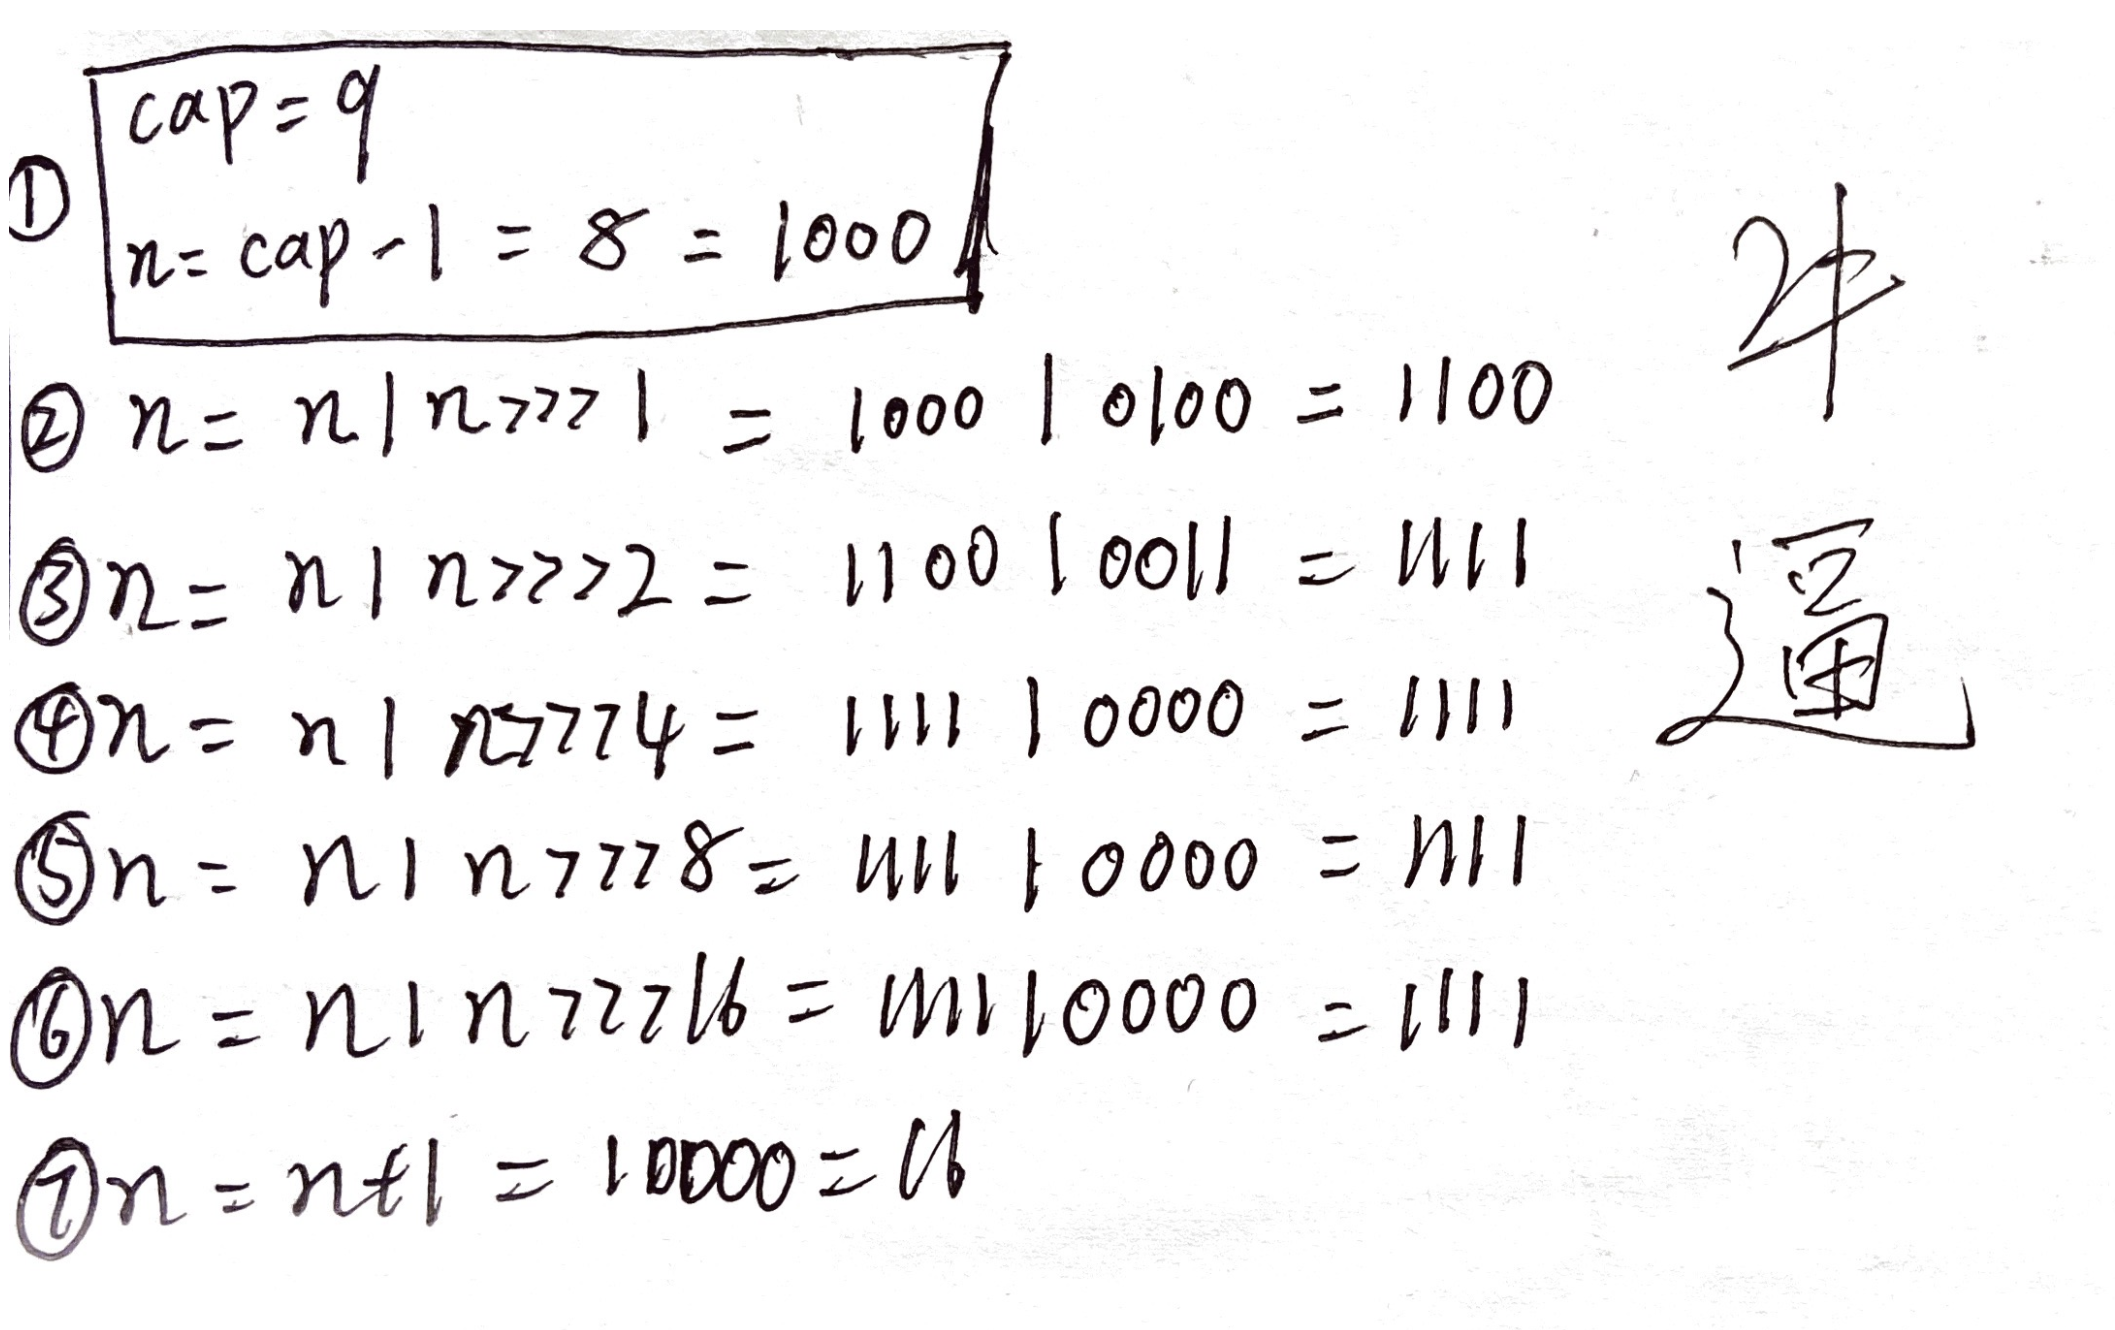 ① cap=9
n=cap-1=8=1000
② n=n|n>>>1=1000|0100=1100
③ n=n|n>>>2=1100|0011=1111
④ n=n|n>>>4=1111|0000=1111
⑤ n=n|n>>>8=1111|0000=1111
⑥ n=n|n>>>16=1111|0000=1111
⑦ n=n+1=10000=16
牛
逼